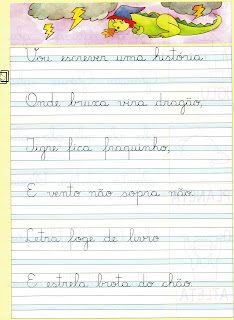 Vou escrever uma história
Onde bruxa vira dragão,
Tigre fica fraquinho,
E vento não sopra não.
Letra foge de livro
E estrela brota do chão.